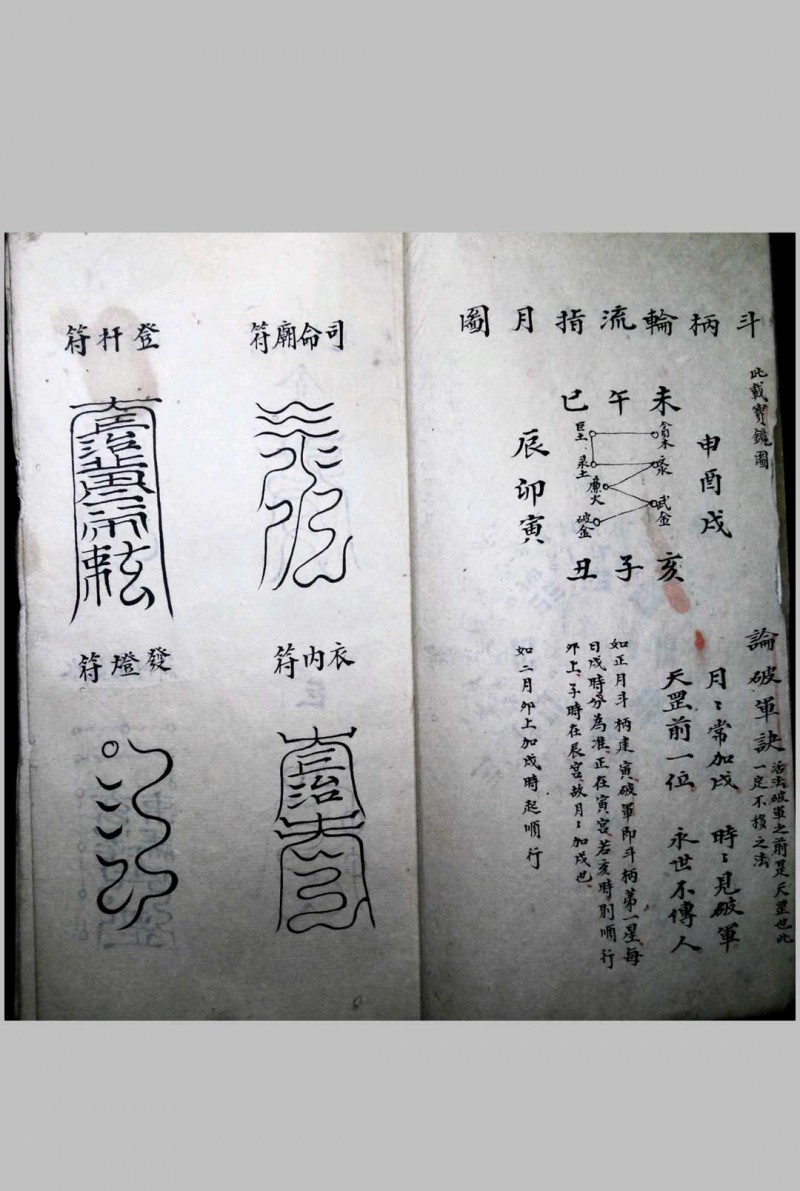 斗柄輪流指月圖
此載寶鏡圖
未午巳
申酉戌
辰卯寅
亥子丑
貪木
巨土
禄土
文水
廉火
武金
破金
論破軍訣
活法破軍之前是天罡也此
一定不移之法
月〻常加戌 時〻見破軍
天罡前一位 永世不傳人
如正月斗柄建寅破軍即斗柄第一星每
日戌時分為准正在寅宮若亥時則順行
卯上子時在辰宮故月〻加戌也
如二月卯上加戌時起順行
司命廟符
衣內符
登杆符
發燈符